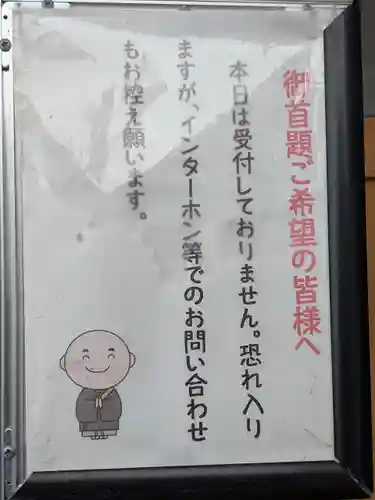 御首題ご希望の皆様へ
本日は受付しておりません。恐れ入り
ますが、インターホン等でのお問い合わせ
もお控え願います。